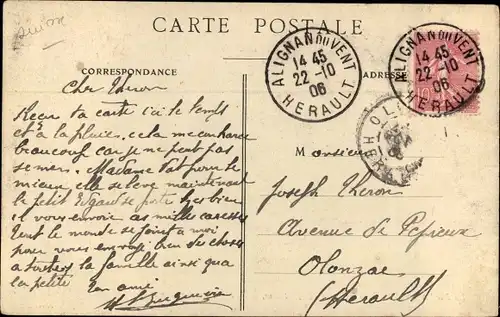 CARTE POSTALE
CORRESPONDANCE
ADRESSE
ALIGNAN DU VENT
14 45
22 -10
06
HERAULT
ALIGNAN DU VENT
14 45
22 -10
06
HERAULT
Cher Théron
Reçu ta carte ici le temps
est à la pluie, cela
beaucoup car je ne peut pas
semer. Madame Pat pour le
mieux elle se lève maintenant
le petit Edgard se porte très bien
il vous envoie as mille caresses
tout le monde se joint a moi
pour vous envoyer bien de choses
a toute la famille ainsi qua
la petite
ton ami
Monsieur
Joseph Théron
Avenue de Pepieux
Olonzac
(Hérault)